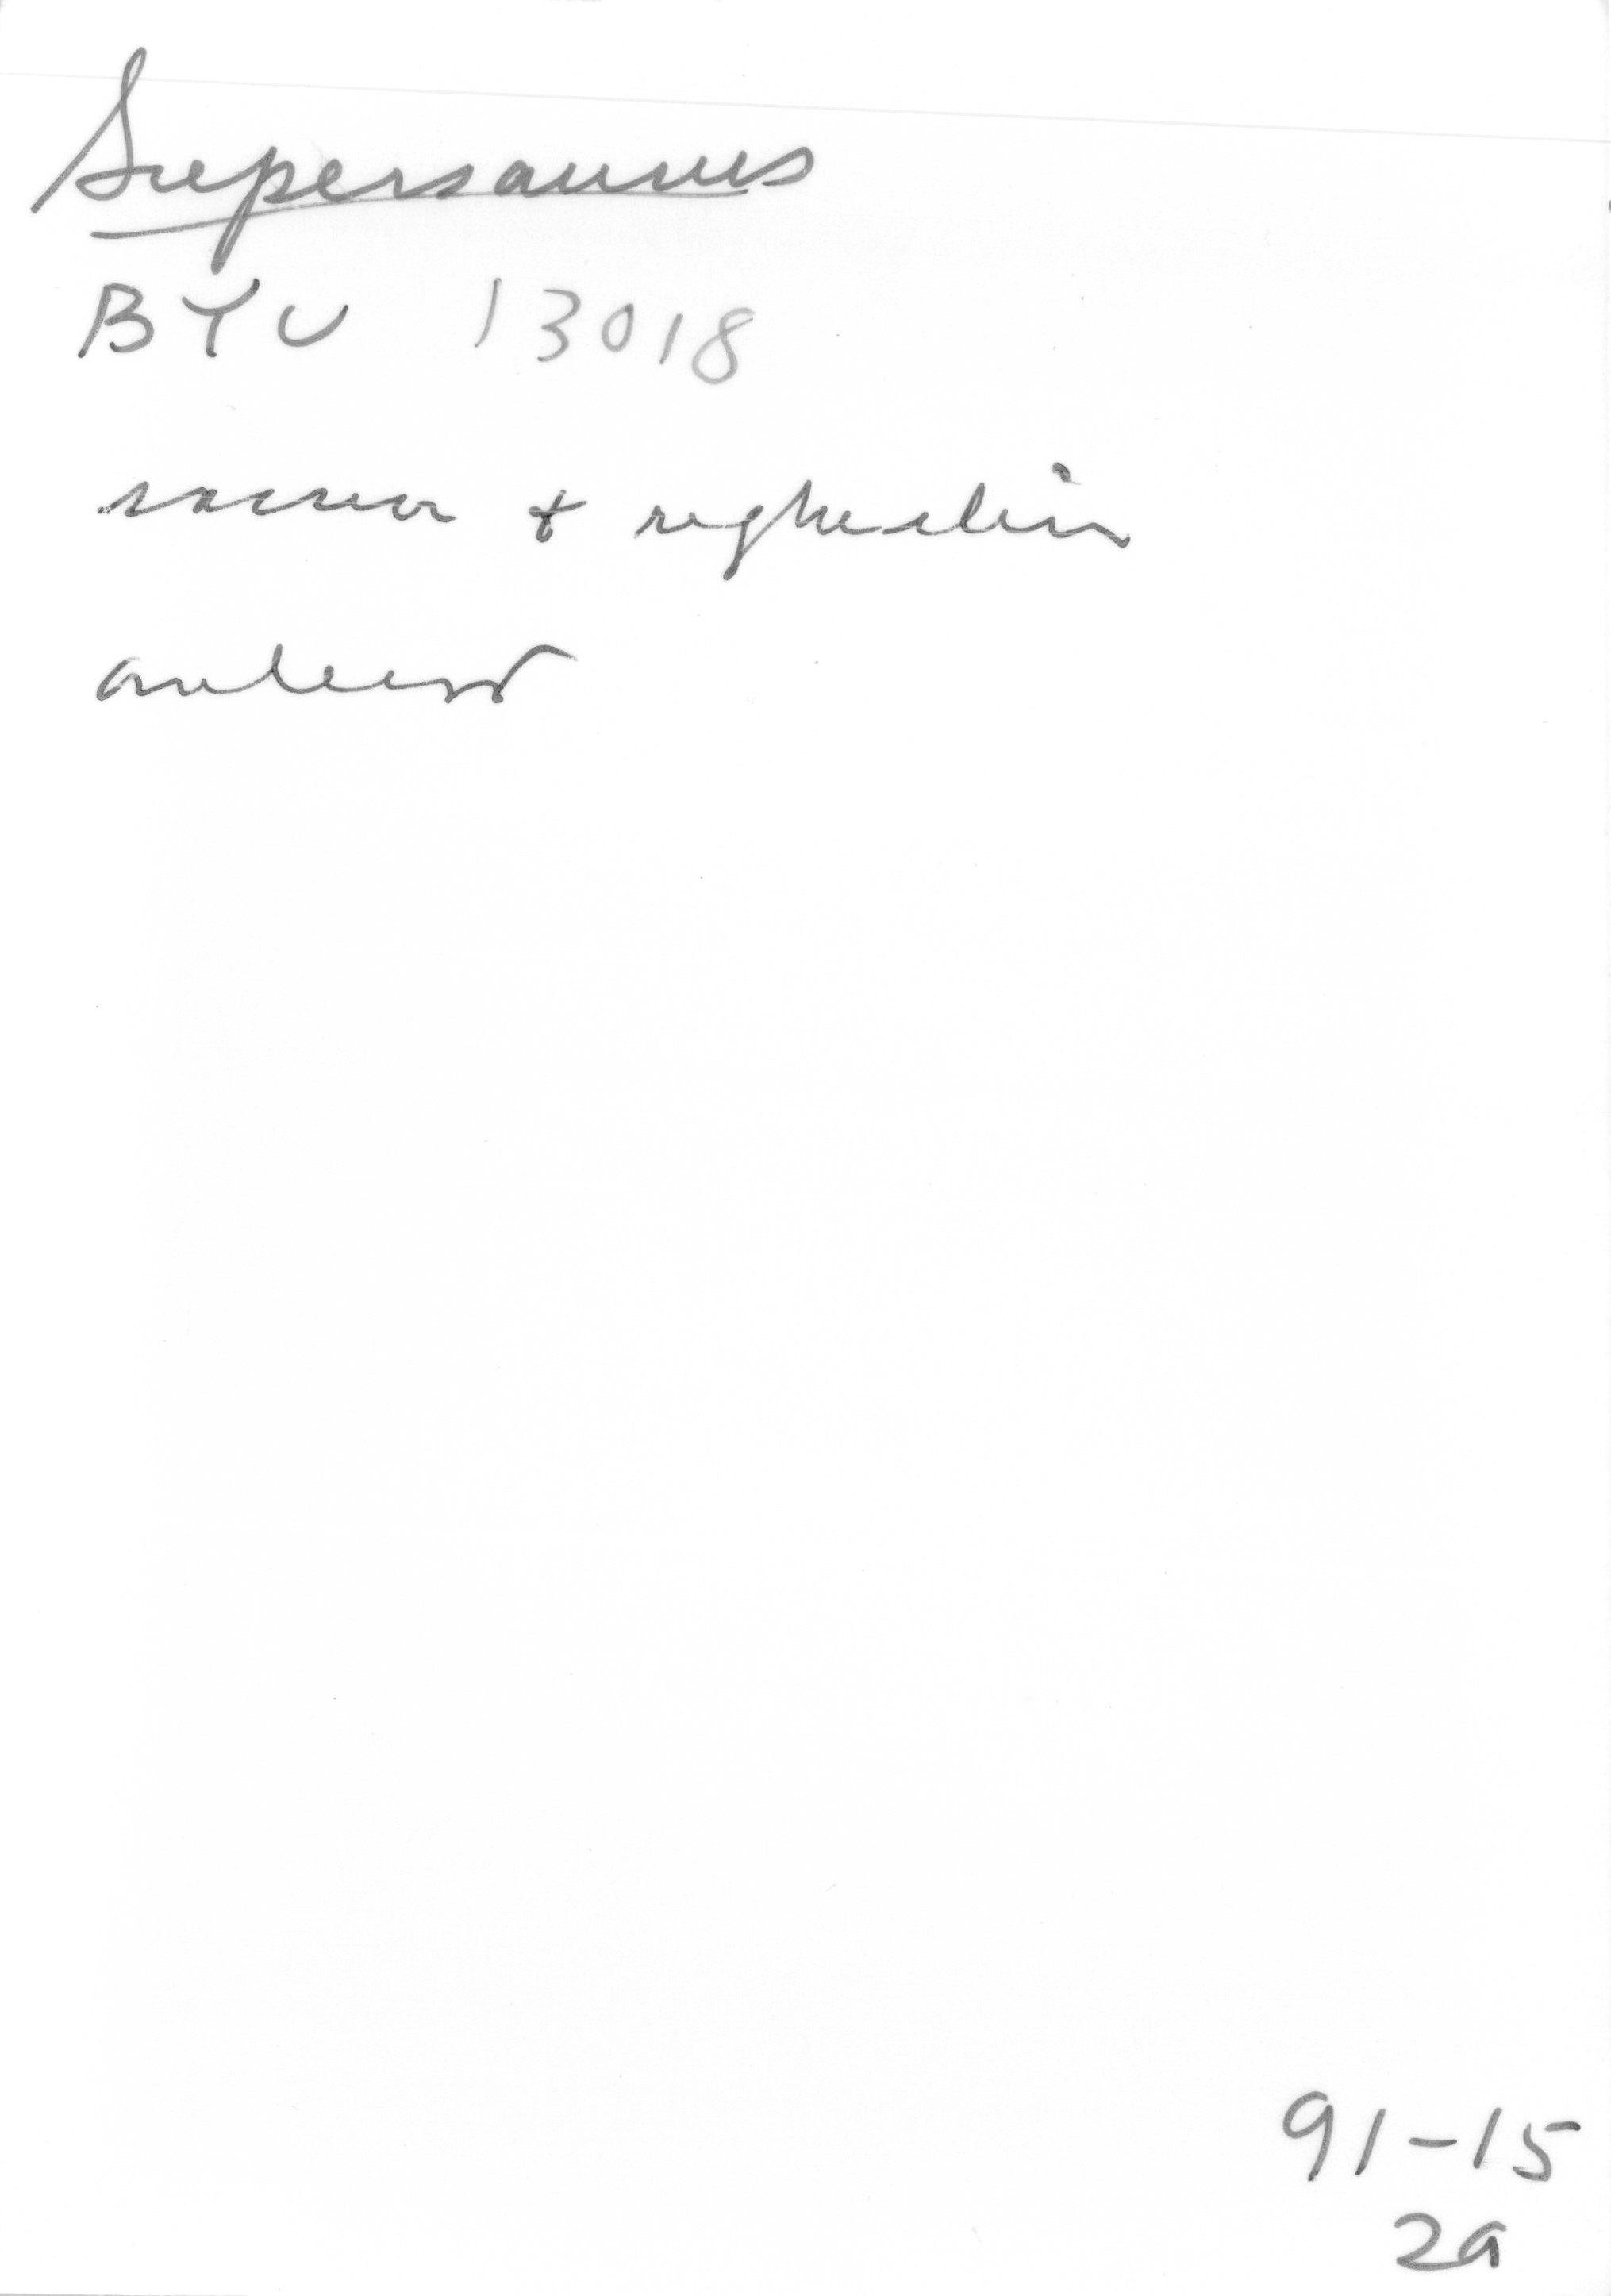 Supersaurus
BYU 13018
sacrum + right ilium
anterior
91-15
2a